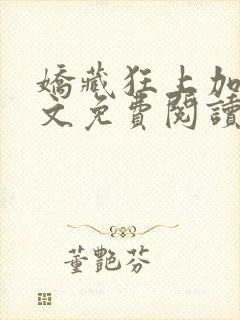 嬌藏狂上加
文免費閱讀
董艷芬